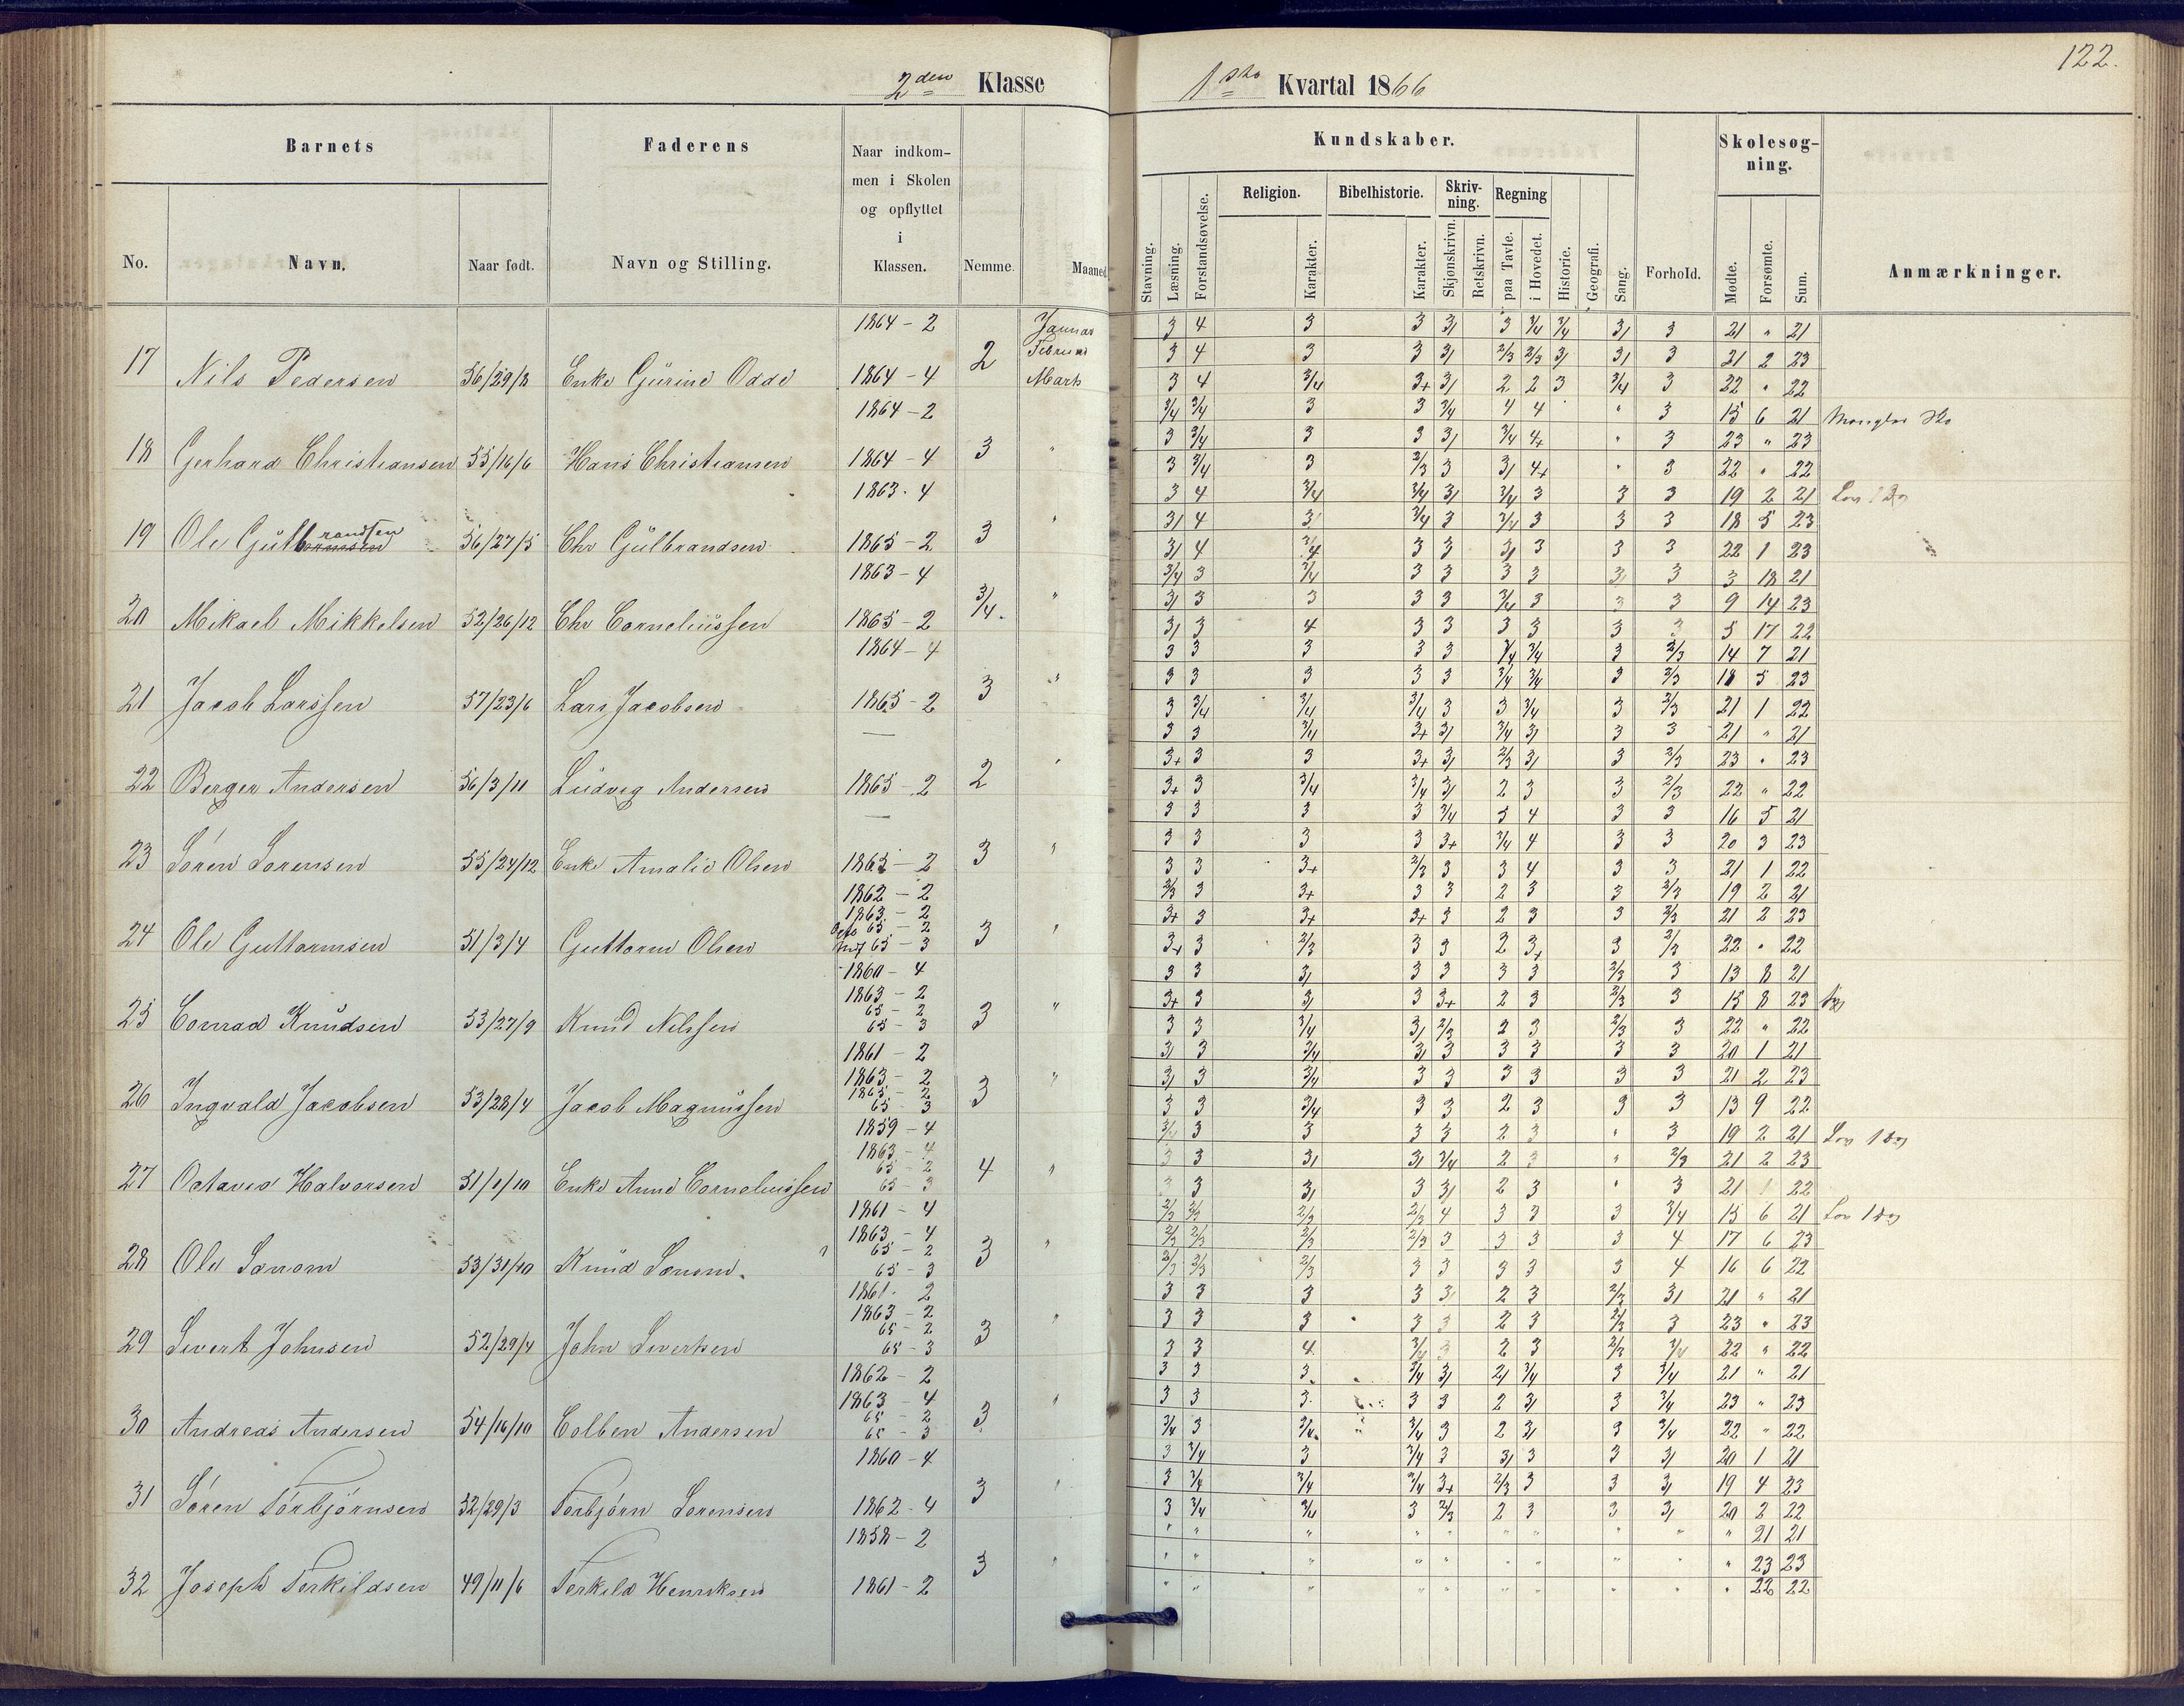 122.
2den Klasse 1ste Kvartal 1866
Barnets Faderens Naar indkommen i Skolen og opflyttet i Klassen. Nemme. Maaned Kundskaber. Forhold. Skolesøgning. Anmærkninger.
No. Navn. Naar født. Navn og Stilling.
Stavning. Læsning. Forstandsøvelse. Religion. Karakter. Bibelhistorie. Karakter. Skrivning. Skjønskrivn. Retskrivn. Regning paa Tavle. i Hovedet. Historie. Geografi. Sang. Mødte. Forsømte. Sum.
1864 - 2 Januar 3 4 3 3 3/ 3 3/4 3/4 3/ 3 21 " 21
17 Nils Pedersen 56/29/8 Enke Gurine Odde 2 Februar 3 4 3 3 3/ 2/3 2/3 3/ 3/ 3 21 2 23
1864 - 4 Marts 3 4 3/4 3+ 3/ 2 2 3 3/4 3 22 " 22
1864 - 2 3/4 3/4 3 3 3/4 4 4 " 3 15 6 21 Mangler Sko
18 Gerhard Christiansen 55/16/6 Hans Christiansen 3 " 3 3/4 3 3 3/ 3/4 4+ " 3 23 " 23
1864 - 4 3 3/4 3 2/3 3 3/ 4+ " 3 22 " 22
1863 - 4 3 4 3/4 3/4 3/ 3/4 3 3 3 19 2 21
19 Ole Gulbrandsen 56/27/5 Chr Gulbrandsen 3 " 3/ 4 3/ 3/4 3 3/4 3 3 3 18 5 23
1865 - 2 3/ 4 3/4 3 3 3/ 3 3 3 22 1 23
1863 - 4 3/4 3 3/4 3 3 3 3 3/ 3 3 18 21
20 Mikael Mikkelsen 52/26/12 Chr Corneliussen 3/4. " 3/ 3 3 3 3 3/4 3 3 3 9 14 23
1865 - 2 3/ 3 4 3 3 3 3 3 3 5 17 22
1864 - 4 3 3 3 3 3 3/4 3/4 3 2/3 14 7 21
21 Jacob Larssen 57/23/6 Lars Jacobsen 3 " 3 3 3 3 3 3/4 3/4 3 2/3 18 5 23
1865 - 2 3 3/4 3/4 3/4 3 3 3/4 3 2/3 21 1 22
— 3 3 3/4 3+ 3/ 3/4 3/ 3 3 21 " 21
22 Berger Andersen 56/3/11 Ludvig Andersen 2 " 3+ 3 3 3+ 3/ 2/3 3/ 3 2/3 23 " 23
1865 - 2 3+ 3 3/4 3/4 3/ 2 3 3 2/3 22 " 22
— 3 3 3 3 3/4 3 4 3 3 16 5 21
23 Sören Sorensen 55/24/12 Enke Amalie Olsen 3 " 3 3 3 3 3+ 3/4 4 3 3 20 3 23
1865 - 2 3 3 3+ 2/3 3 3 4 3 3 21 1 22
1862 - 2 2/3 3 3+ 3 3 2 3 3 2/3 19 2 21
24 Ole Guttormsen 51/3/4 Guttorm Olsen 1863 - 2 3 " 3+ 3 3+ 3+ 3 2 3 3 2/3 21 2 23
65 - 2 65 - 3 3+ 3 2/3 3 3 2 3+ 3 2/3 22 " 22
1860 - 4 3 3 3/ 3 3 3 3 2/3 3 13 8 21
25 Conrad Knudsen 53/27/9 Knud Nilssen 1863 - 2 3 " 3+ 3 3/ 3 3+ 2 3 2/3 3 15 8 23
65 - 2 65 - 3 3 3 3/4 3/ 2/3 2 3 2/3 3 22 " 22
1861 - 2 3/ 3 3/4 3/ 3 3 3 3 3 20 1 21
26 Ingvald Jacobsen 53/28/4 Jacob Magnussen 1863 - 2 3 " 3/ 3 3/4 3 3 3 3 3 3 21 2 23
1865 - 2 65 - 3 3 3 3/4 3 3 2 3 3 3 13 9 22
1859 - 4 3/4 3 3 3 3 2 3 " 3 19 2 21
27 Octaves Halvorsen 51/1/10 Enke Anne Corneliussen 1863 - 4 4 " 3 3 3/ 3/ 3/4 2 3 " 2/3 21 2 23
65 - 2 65 - 3 3 3 3/ 3 3/ 2 3 " 3 21 1 22
1861 - 4 2/3 2/3 2/3 2/3 4 3 3 3 3/4 15 6 21
28 Ole Sanom 53/31/10 Knud Sanom. 1863 - 4 3 " 2/3 2/3 2/3 2/3 3 3 3 3 4 17 6 23
65 - 2 65 - 3 2/3 2/3 2/3 3 3 3 3 3 4 16 6 22
1861 - 2 3 3 3 3 3/ 2 3 2/3 3/ 21 " 21
29 Sivert Johnsen 52/29/4 John Sivertsen 1863 - 2 3 " 3 3 3 3 3 2 3 2/3 3 23 " 23
65 - 2 65 - 3 3 3 4 3/4 3 2 3 2/3 3/4 22 " 22
1862 - 2 3 3 3 3/4 3/ 2/ 3/4 3 3/4 21 " 21
30 Andreas Andersen 54/16/10 Colben Andersen 1863 - 4 3 " 3 3 3 3 3 2 3/ 3 3/4 23 " 23
65 - 2 65 - 3 3/4 3 3/4 3/4 3 2 3/ 3 3/4 22 " 22
1860 - 4 3 3/4 3 3/4 3 3/ 3 3 3/ 20 1 21
31 Sören Torbjörnsen 52/29/3 Torbjörn Sorensen 3 " 3 3/4 3/4 3/4 3+ 2/3 3 3 3/ 19 4 23
1862 - 4 3 3/4 3/4 3 2/3 2 3 3 3/ 20 2 22
1858 - 2 " " " " " " " " " " 21 21
32 Joseph Terkildsen 49/11/6 Terkild Henriksen 3 " " " " " " " " " " " 23 23
1861 - 2 " " " " " " " " " " 22 22